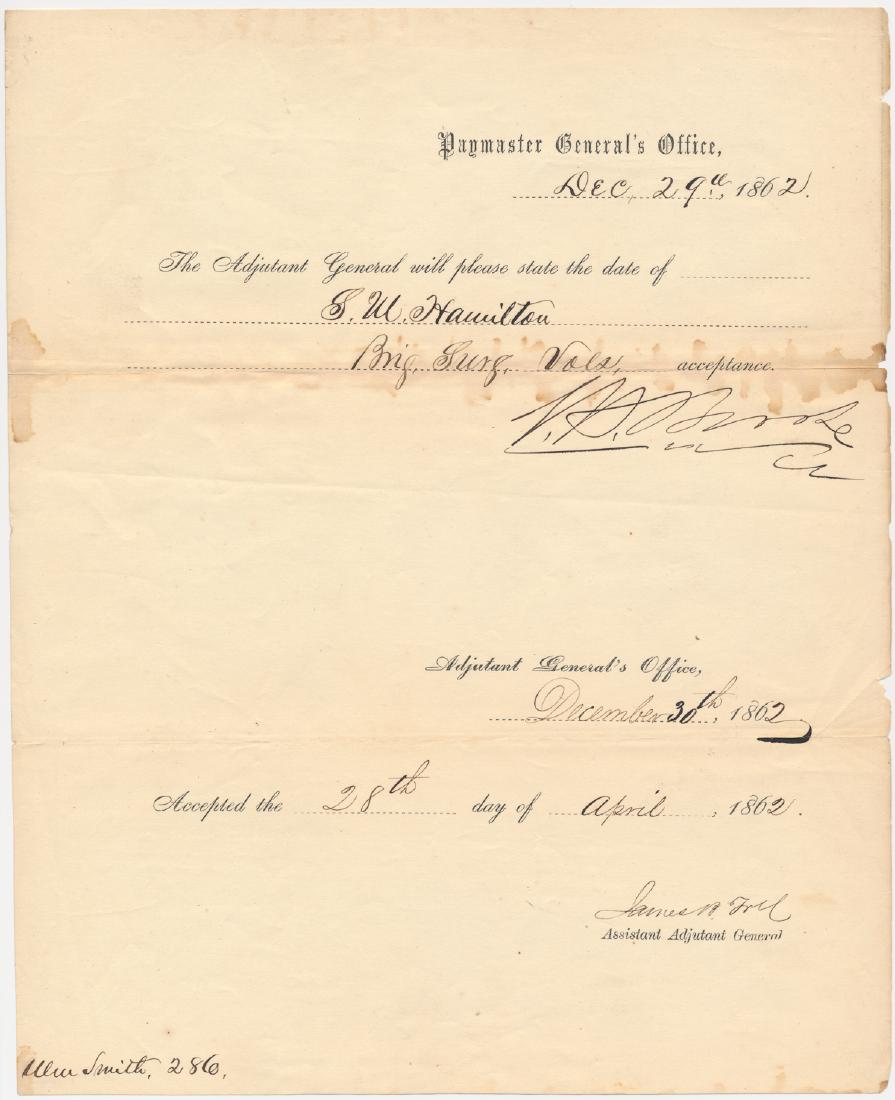 Paymaster General's Office,
Dec, 29th, 1862.
The Adjutant General will please state the date of
S. W. Hamilton
Brig, Surg, Vols, acceptance.
Adjutant General's Office,
December 30th, 1862
Accepted the 28th day of April, 1862.
James B. Fry
Assistant Adjutant General
Wm Smith, 286,